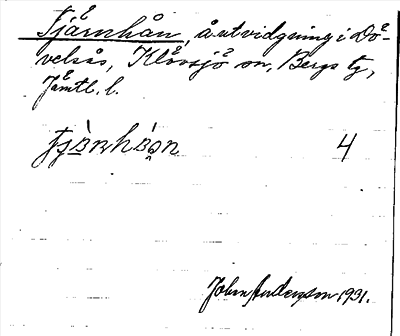 Tjärnhån, åutvidgning i Dö-
velsås, Klövsjö sn, Bergs tg,
Jämtl. l.
4
John Anderson 1931.